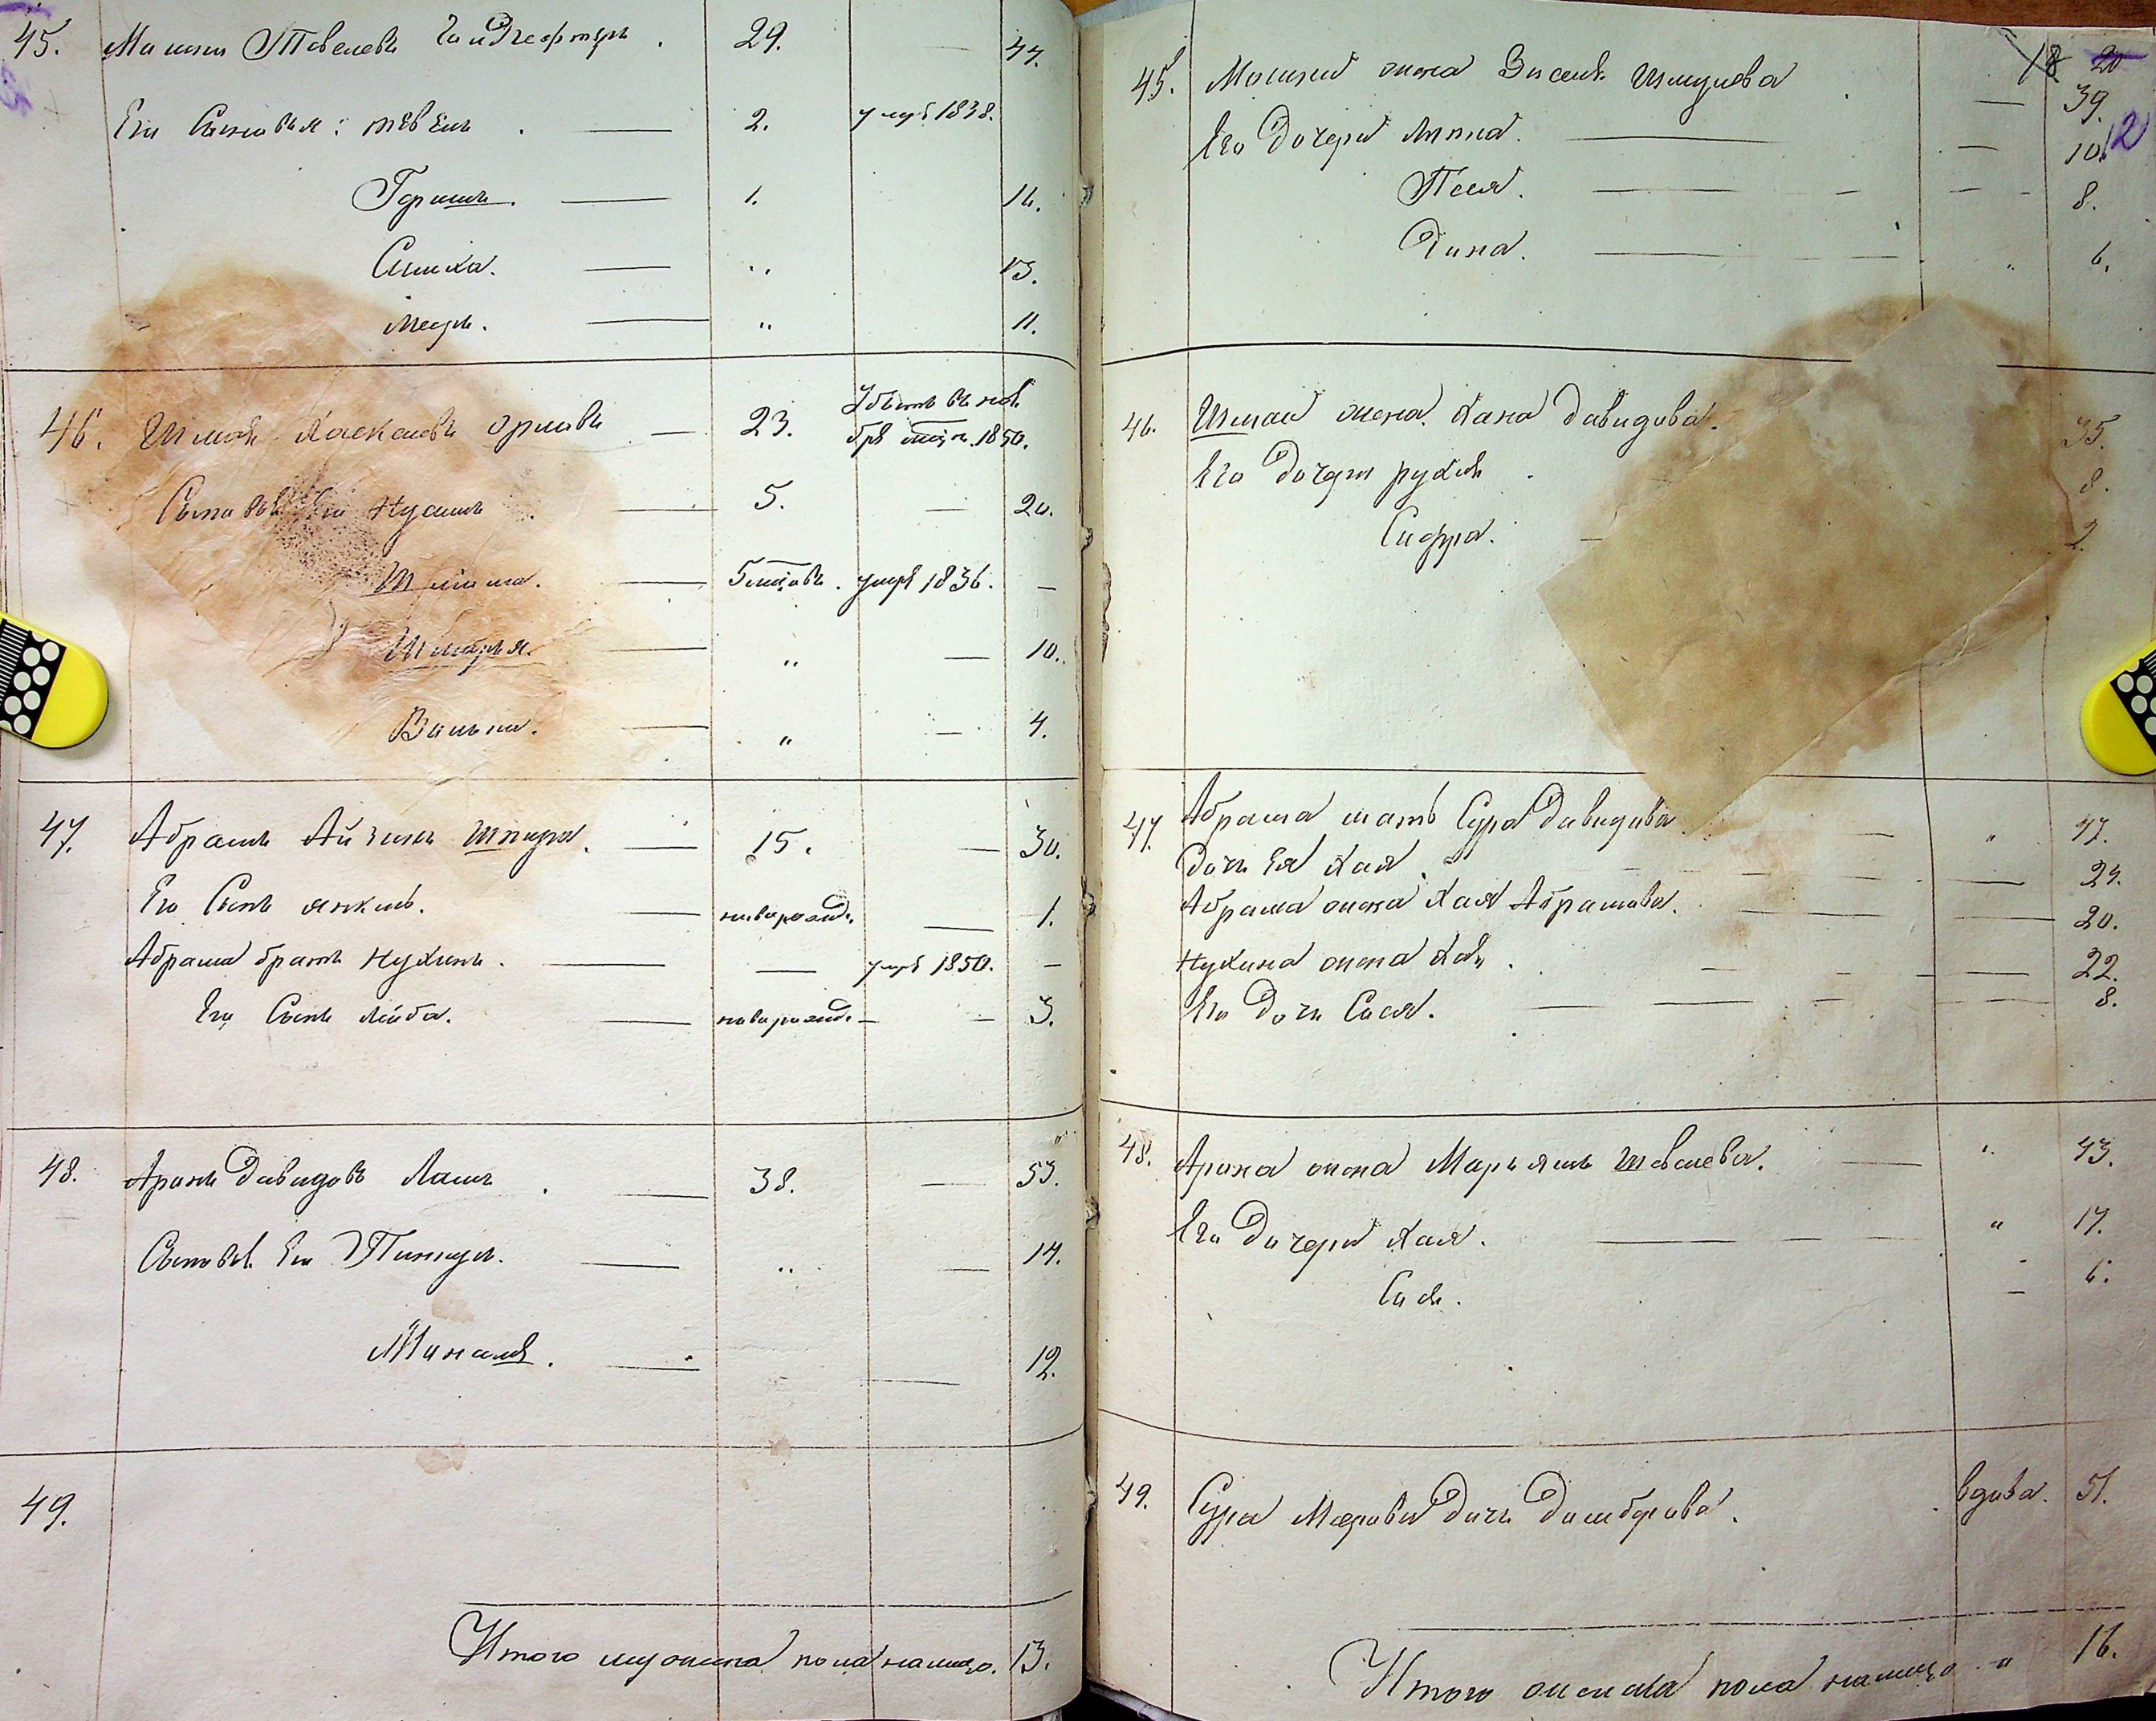 45. Мошко Тевелевъ 29. — 44.
Его Сыновья: Тевель. — 2. умръ 1838.
Гершъ. — 1. 16.
Сишка. — " 13.
Мееръ. — " 11.
46. Шмай Хаскелевъ Орловъ — 23. Убылъ въ ноябрѣ 1850.
Сыновья Его Нусимъ — 5. — 20.
Шлиома. — 5 мѣсяцовъ. умръ 1836. —
Шмарья. — " — 10.
Волько. — " — 4.
47. Абрамъ Айзикъ Шпира. — 15. — 30.
Его Сынъ Янкель. — новорожд. — 1.
Абрама братъ Нухимъ. — — умръ 1850. —
Его Сынъ Лейба. — новорожд. — — 3.
48. Аронъ Давидовъ Лашъ. — 38. — 53.
Сыновья Его Пинкусъ. — " — 14.
Михаль. — — 12.
49.
Итого мужеска пола налицо. 13.
18 20
12
45. Мошки жена Зисель Шмулева — 39.
Его дочери Липка. — — 10.
Песя. — — 8.
Дина. — " 6.
46. Шмаи жена Хана Давидова. 35.
Его дочери Рухля 8.
Сифра. — 2.
47. Абрама мать Сура Давидова — " 47.
Дочь Ея Хая. — 24.
Абрама жена Хая Абрамова. — 20.
Нухима жена Хая. — — 22.
Его Дочь Сося. — — 8.
48. Арона жена Марьямъ Шевелева. — " 43.
Его Дочери Хая. — " 17.
Сося. — 6.
49. Сура Меерова Дочь Домброва. вдова. 51.
Итого женска пола налицо " 16.